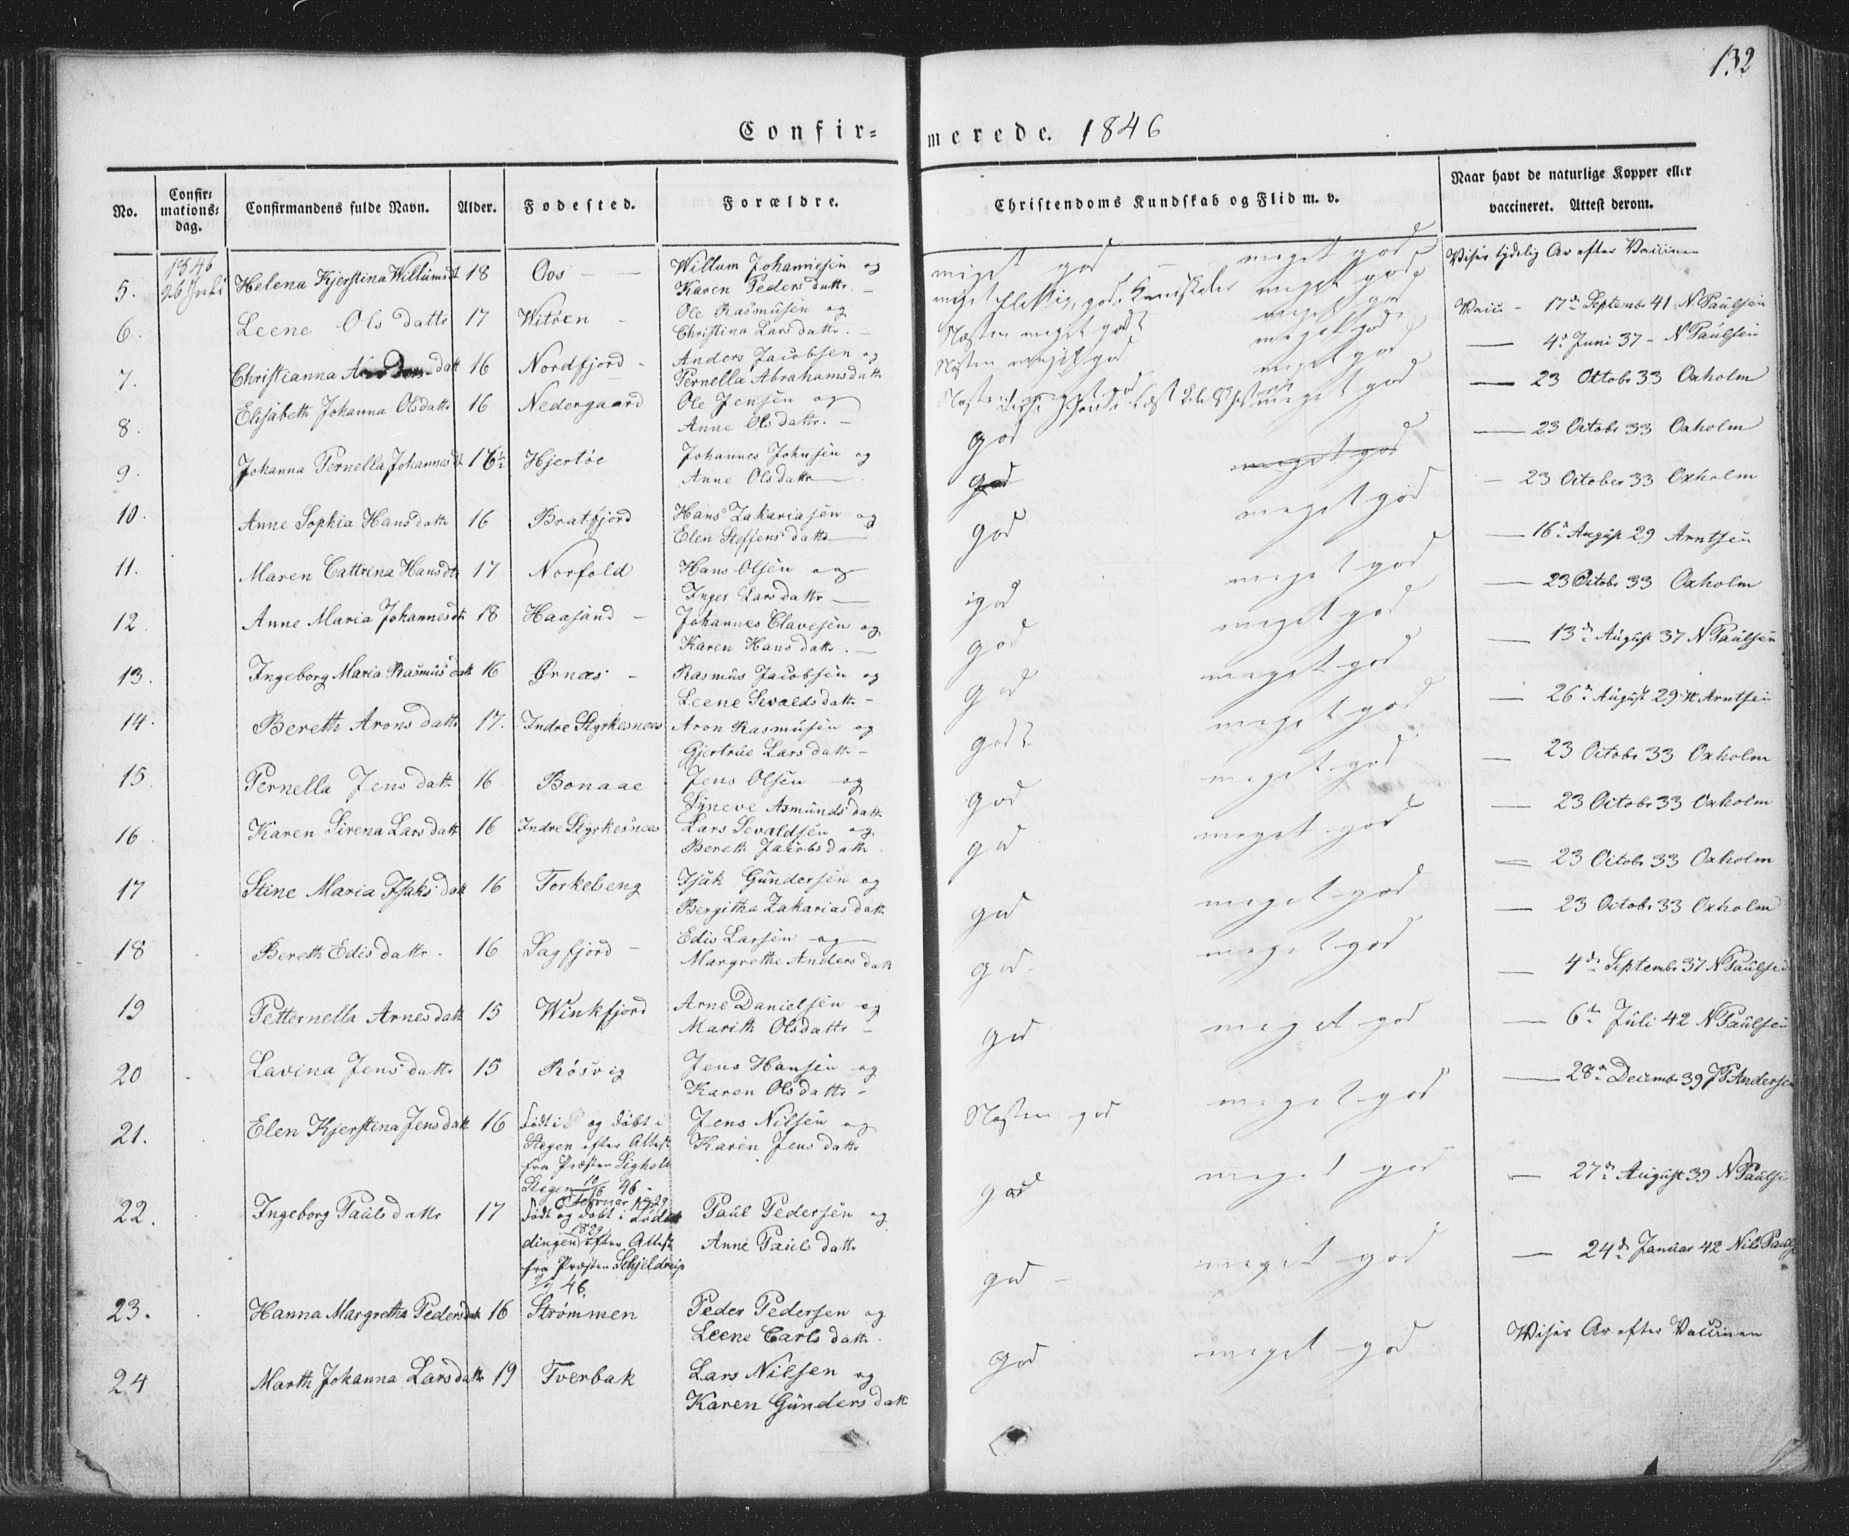 132
Confir= merede. 1846
No. Confir=mations=dag. Confirmandens fulde Navn. Alder. Fødested. Forældre. Christendoms Kundskab og Flid m. v. Naar havt de naturlige Kopper eller vaccineret. Attest derom.
5. 1846 26 Juli Helena Kjerstina Willumsdt 18 Oos Willum Johannesen og Karen Peders dattr. meget god meget god Viser tydelig Ar efter Vaccinen
6. Leene Ols dattr 17 Witöen Ole Rasmusen og Christina Lars dattr. meget god Vacc 17de Septembr 41 N Paulsen
7. Christianna datt 16 Nordfjord Anders Jacobsen og Pernella Abrahamsdatt Næsten meget god meget god 4de Juni 37 N Paulsen
8. Elisabeth Johanna Olsdattr 16 Nedergaard Ole Jensen og Anne Ols dattr. god meget god 23 Oktobr 33 Oxholm
9. Johanna Pernella Johannesdt 16½ Hjertöe Johannes Johnsen og Anne Olsdattr god meget god 23 Octobr 33 Oxholm
10. Anne Sophia Hansdatt 16 Bratfjord Hans Zakariasen og Elen Steffens dattr god meget god 23 October 33 Oxholm
11. Maren Cattrina Hansdtr 17 Norfold Hans Olsen og Inger Lars dattr god meget god 16de August 29 Arntsen
12. Anne Maria Johannesdt 18 Haasand Johannes Clavesen og Karen Hans datt. god meget god 23 Octobr 33 Oxholm
13. Ingeborg Maria Rasmus datt 16 Ørnæs Rasmus Jacobsen og Leene Sevalds datt god meget god 13de August 37 N Paulsen
14. Bereth Arons dattr 17. Indre Styrkesnees Aron Rasmusen og Gjertrue Lars datt godt meget god 26de August 29 H Arntsen
15. Pernella Jens datt 16 Bonaae Jens Olsen og Syneve Asmunds datt god meget god 23 Octobr 33 Oxholm
16. Karen Sirena Lars datt 16 Indre Styrkesnees Lars Sevaldsen og Bereth Jacobs datt god meget god 23 Octobr 33 Oxholm
17 Stine Maria Isaks datt 16 Torkelseng Isak Gundersen og Bergitha Zakarias datt god meget god 23 Octobr 33 Oxholm
18 Bereth Edis dattr. 16 Sagfjord Edis Larsen og Margrethe Anders datt god meget god 23 Octobr 33 Oxholm
19 Petternella Arnes datt 15 Winkfjord Arne Danielsen og Marith Olsdattr god meget god 4de Septembr 37 N Paulsen
20 Lavina Jens dattr 15 Rösvig Jens Hansen og Karen Olsdattr Næsten god meget god 6te Juli 42 N Paulsen
21. Elen Kjerstina Jens datt 16 födt i og döbt i Stegen efter Attest fra Præsten Stegen 46 Jens Nilsen og Karen Jens datt god meget god 28de Decembr 39 Andersen
22. Ingeborg Pauls dattr 17 födt og döbt i Lödingen efter Attest fra Præsten Schjeldrup 46. Paul Pedersen og Anne Pauls datt god meget god 27de August 39 N Paulse
23. Hanna Margretha Pedersdatt 16 Strömmen Peder Pedersen og Leene Carls datt. god meget god 24de Januar 42 Nils Pauls
24 Marth Johanna Lars datt 19 Tverbak Lars Nilsen og Karen Gunders datt Wiser Ar efter Vaccinen